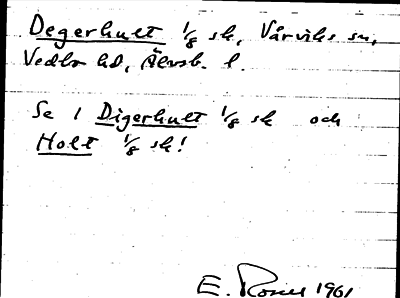 Degerhult 1/8 sk, Vårviks sn,
Vedbo hd, Älvsb. l.
Se / Digerhult 1/8 sk och
Holt 1/8 sk!
E. Rosell 1961